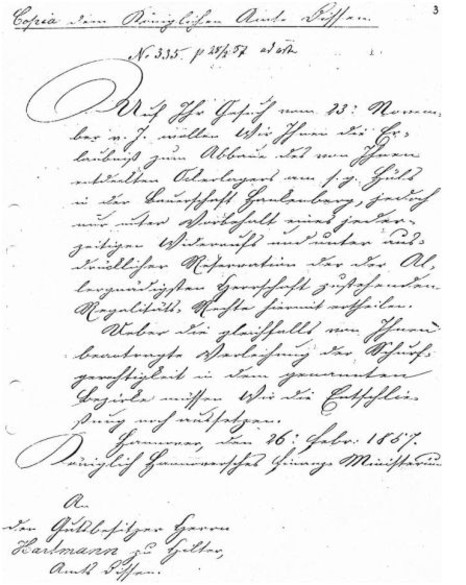 3
Copia dem Königlichen Amte Dissen.
No 335. p 28/2 57 ad acta
Auf Ihr Gesuch vom 23: Novem-
ber v. J. wollen Wir Ihnen die Er-
laubniß zum Abbaue des von Ihnen
entdeckten Ockerlagers am s. g. Hüls
in der Bauerschaft Hankenberg, jedoch
nur unter Vorbehalt eines jeder-
zeitigen Widerrufs und unter aus-
drücklicher Reservation der der Al-
lergnädigsten Herrschaft zustehenden
Regalitäts-Rechte hiermit ertheilen.
Ueber die gleichfalls von Ihnen
beantragte Verleihung der Schurf-
gerechtigkeit in dem genannten
Bezirke müssen Wir die Entschlie-
ßung noch aussetzen.
Hannover, den 26: Febr: 1857.
Königlich Hannoversches Finanz Ministerium
An
den Gutsbesitzer Herrn
Hartmann zu Hilter,
Amts Dissen.